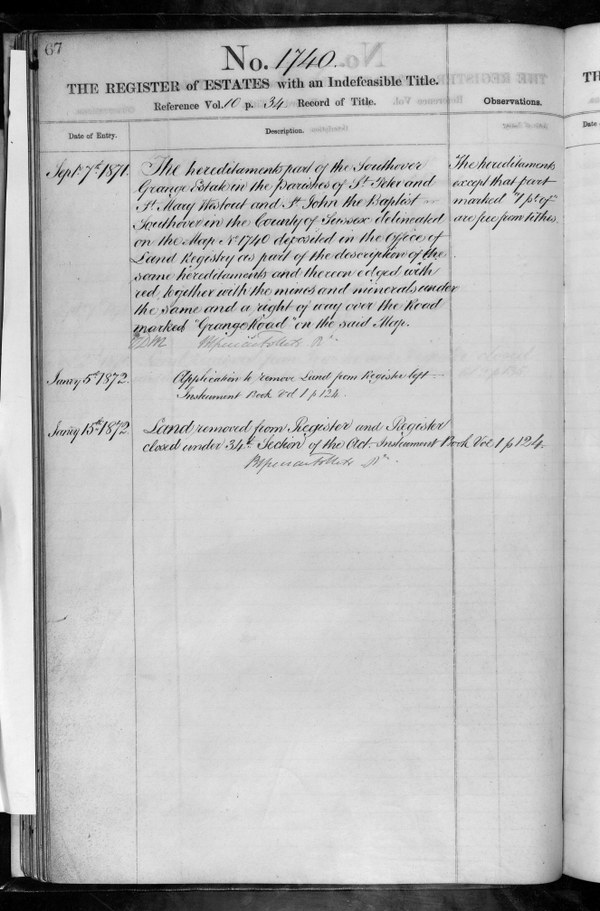 67
No. 1740.
THE REGISTER of ESTATES with an Indefeasible Title.
Reference Vol. 10 p. 34 Record of Title.
Observations.
Date of Entry.
Description.
Sept. 7th 1871.
The hereditaments part of the Southover
Grange Estate in the parishes of St. Peter and
St. Mary Westout and St. John the Baptist
Southover in the County of Sussex delineated
on the Map No. 1740 deposited in the Office of
Land Registry as part of the description of the
same hereditaments and thereon edged with
red together with the mines and minerals under
the same and a right of way over the Road
marked "Grange Road" on the said Map.
The hereditaments
except that part
marked "1 pt. of"
are free from tithes.
Janry 5th 1872.
Application to remove Land from Register left
Instrument Book Vol 1 p 124.
Janry 15th 1872
Land removed from Register and Register
closed under 34th Section of the Act. Instrument Book Vol. 1 p 124.